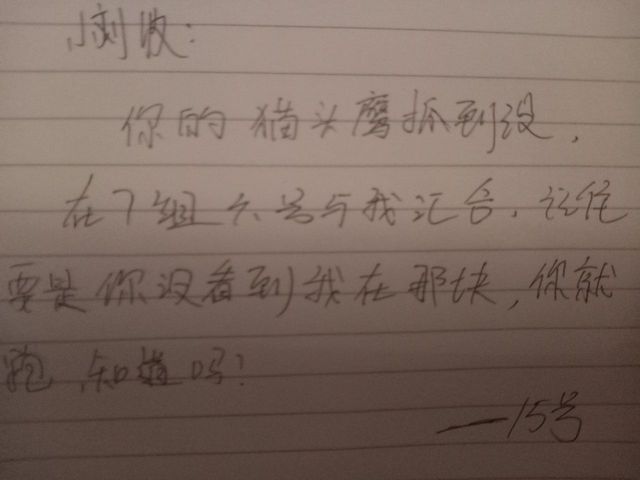 小刘收:
你的猫头鹰抓到没,
在7组六号与我汇合,记住
要是你没看到我在那块,你就
跑,知道吗?
——15号